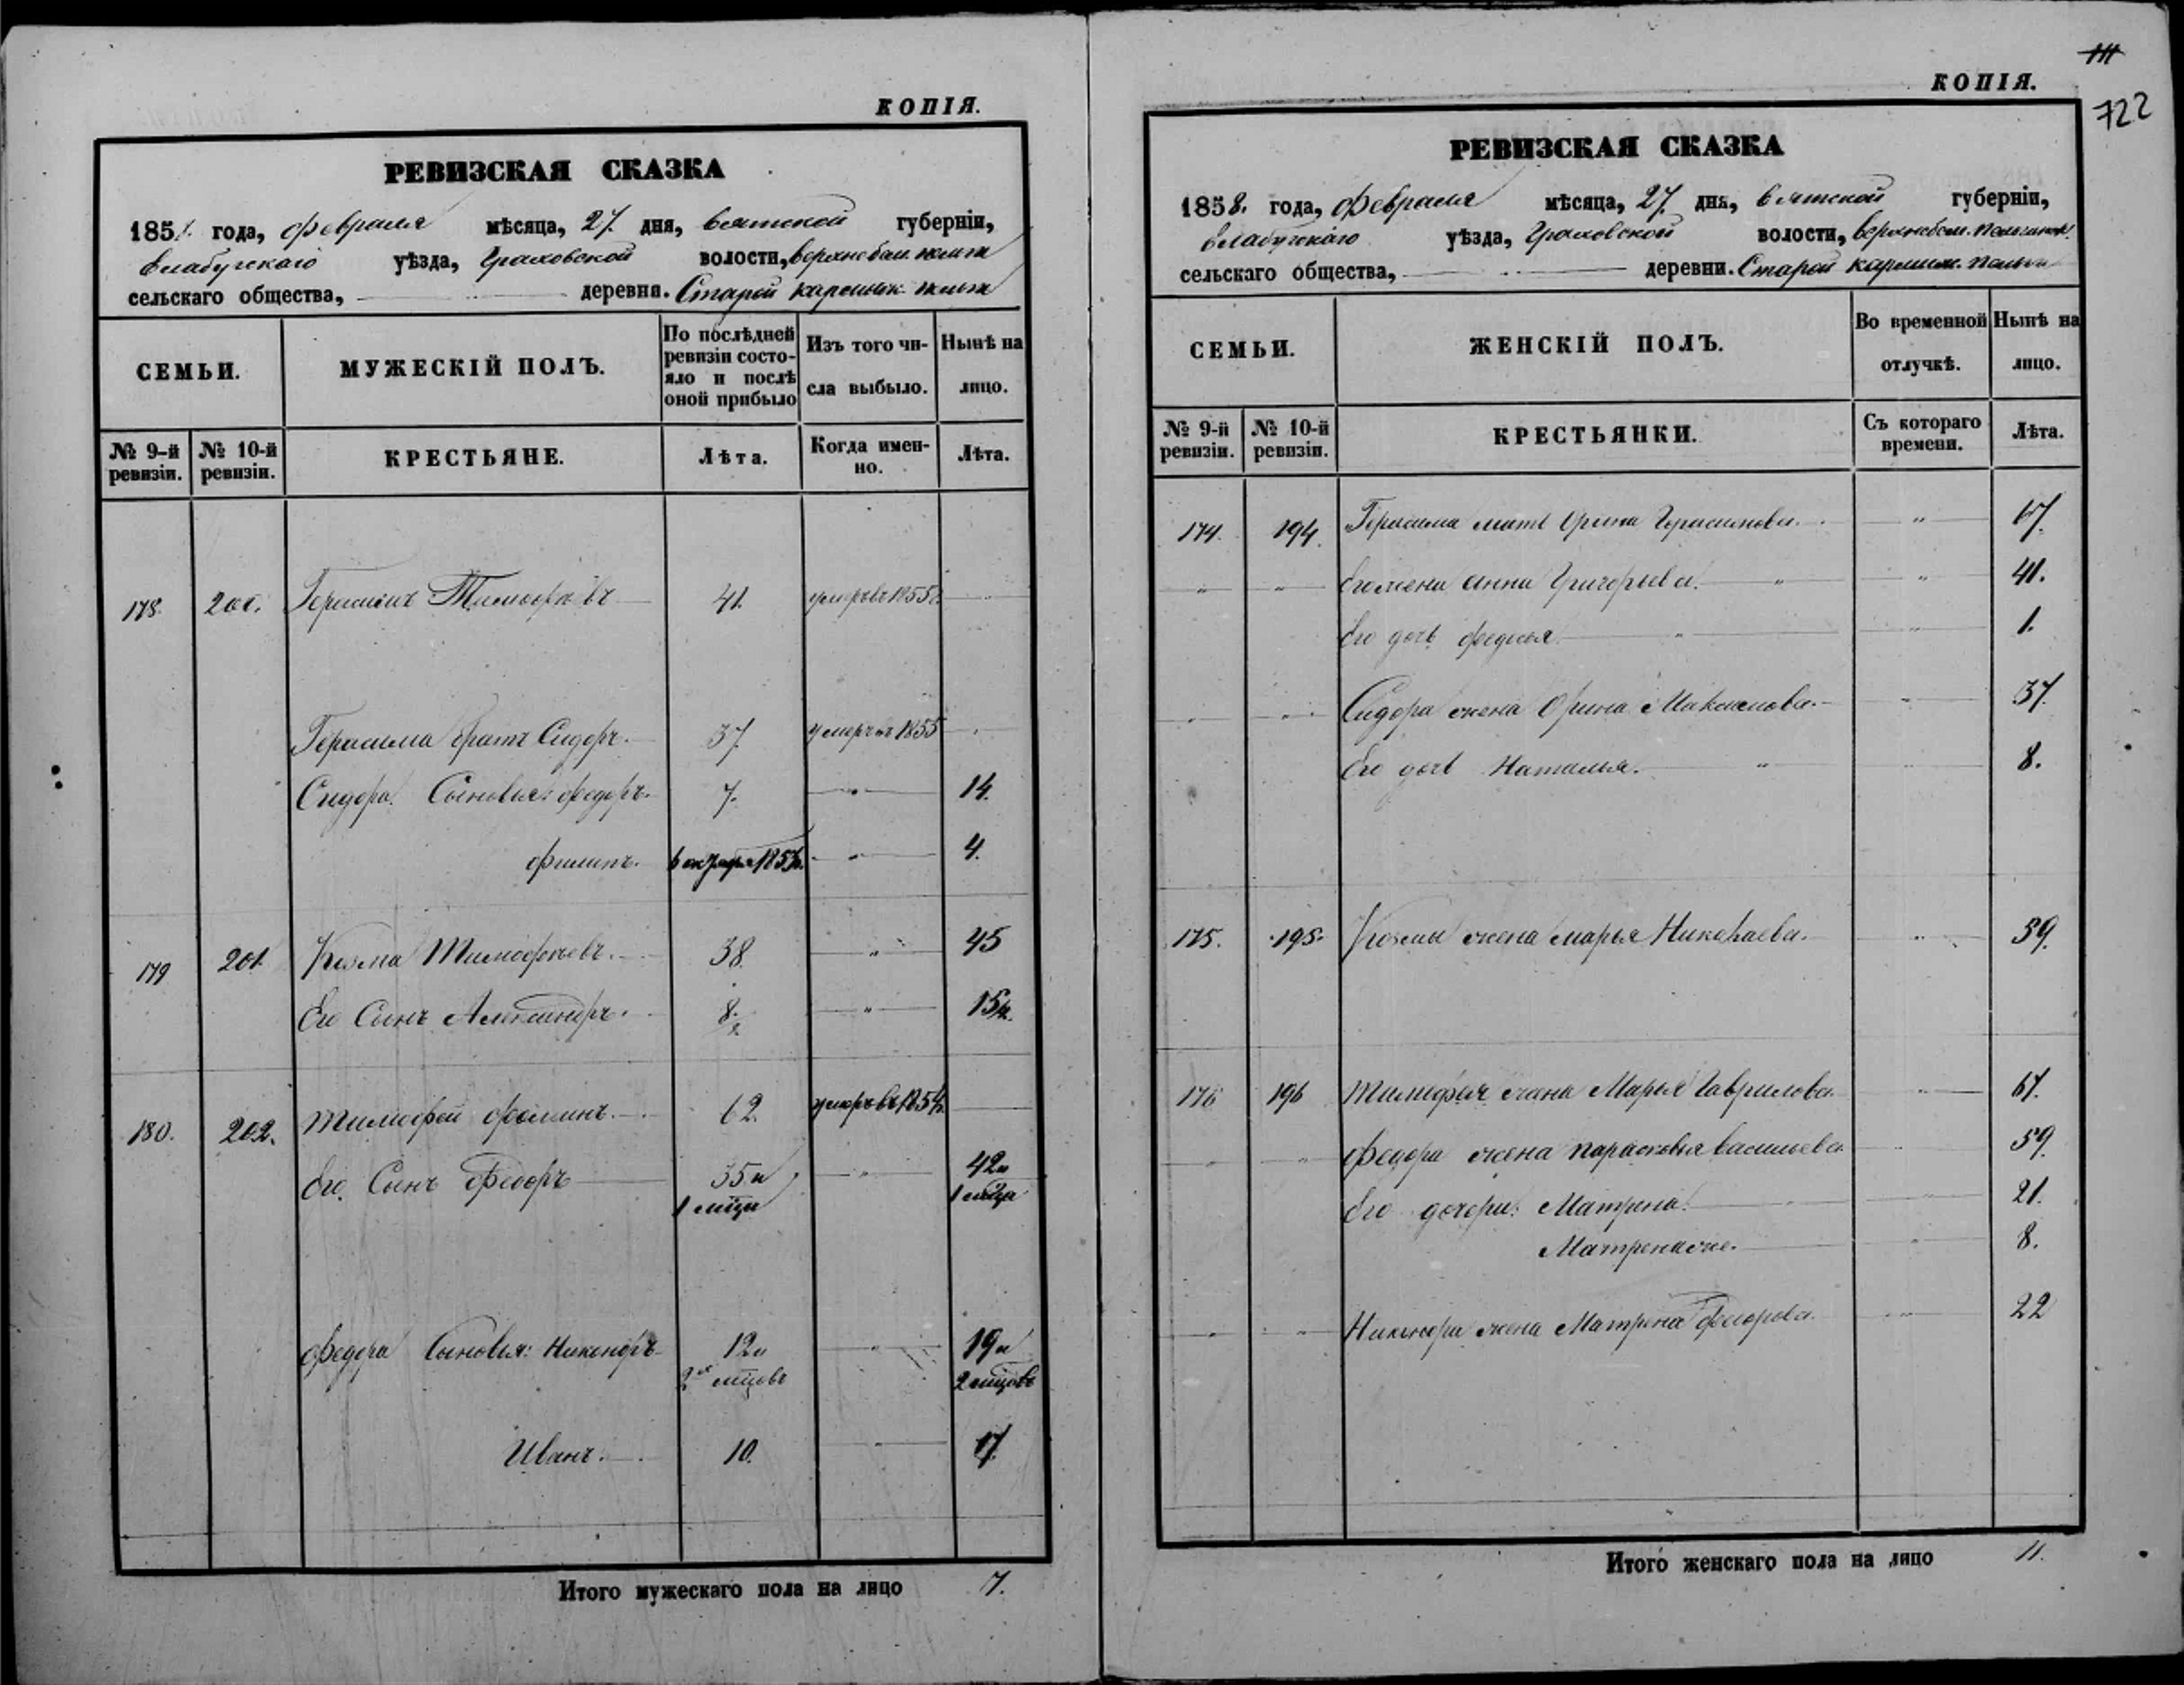 КОПІЯ.
РЕВИЗСКАЯ СКАЗКА
185 года, февраля мѣсяца, 27 дня, Вятской губерніи,
Елабугскаго уѣзда, Граховской волости,
сельскаго общества, деревни. Старой
СЕМЬИ.
МУЖЕСКІЙ ПОЛЪ.
По послѣдней ревизіи состо-
яло и послѣ оной прибыло
Изъ того чи-
сла выбыло.
Нынѣ на
лицо.
№ 9-й ревизіи.
№ 10-й ревизіи.
КРЕСТЬЯНЕ.
Лѣта.
Когда имен-
но.
Лѣта.
178. 200. Герасимъ Тимофѣевъ 41. умеръ въ 1855
Герасима братъ Сидоръ. 37. умеръ въ 1855
Сидора Сыновья: Федоръ. 7. 14.
Филипъ. 4.
179 201 Козма Тимофѣевъ. 38. 45
Его Сынъ Александръ. 8 1/2 15 1/2
180. 202. Тимофей Фоминъ. 62. умеръ въ 1854
Его Сынъ Федоръ 35 и 42 и
1 мѣца 1 мѣца
Федора Сыновья: Никоноръ 12 и 19 и
2 мѣцовъ 2 мѣцовъ
Иванъ. 10. 17.
Итого мужескаго пола на лицо 7.
111
КОПІЯ.
722
РЕВИЗСКАЯ СКАЗКА
1858. года, февраля мѣсяца, 27 дня, Вятской губерніи,
Елабугскаго уѣзда, Граховской волости,
сельскаго общества, деревни. Старой
СЕМЬИ.
ЖЕНСКІЙ ПОЛЪ.
Во временной
отлучкѣ.
Нынѣ на
лицо.
№ 9-й ревизіи.
№ 10-й ревизіи.
КРЕСТЬЯНКИ.
Съ котораго
времени.
Лѣта.
174. 194. Герасима мать Ирина Герасимова. 67.
Его жена Анна Григорьева. 41.
Его дочь Федосья 1.
Сидора жена Орина Максимова. 37.
Его дочь Наталья. 8.
175. 195. Козмы жена Марья Николаева. 59.
176 196 Тимофея жена Марья Гаврилова 67.
Федора жена Парасковья Васильева 59.
Его дочери: Матрена. 21.
Матрена же. 8.
Никонора жена Матрена Федорова. 22
Итого женскаго пола на лицо 11.